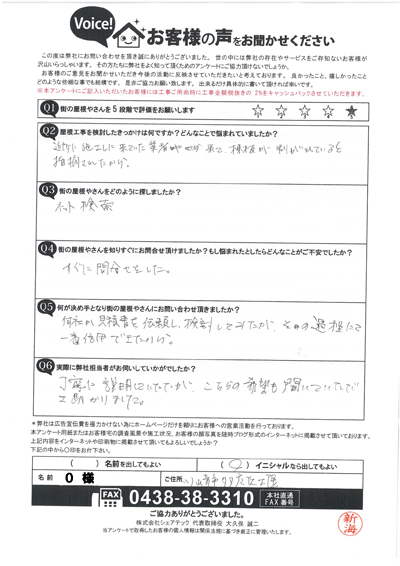 Voice!
お客様の声をお聞かせください
この度は弊社にお問い合わせを頂き誠にありがとうございました。世の中には弊社の存在やサービスをご存知ないお客様が
沢山いらっしゃいます。その方たちに弊社をよく知って頂くためのアンケートにご協力頂けないでしょうか。
お客様のご意見をお聞かせいただき今後の活動に反映させていただきたいと考えております。良かったこと、嬉しかったこと
どのような些細な事でも結構です。是非ご協力お願い致します。出来るだけ具体的に書いて頂ければ幸いです。
※本アンケートにご記入いただいたお客様には工事ご用命時に工事金額税抜きの 2%をキャッシュバックさせていただきます。
Q1 街の屋根やさんを5段階で評価をお願いします
Q2 屋根工事を検討したきっかけは何ですか？どんなことで悩まれていましたか？
近所に施工に来ていた業者が来て、棟板が剥がれていると
指摘されたから。
Q3 街の屋根やさんをどのように探しましたか？
ネット検索
Q4 街の屋根やさんを知りすぐにお問合せ頂けましたか？もし悩まれたとしたらどんなことがご不安でしたか？
すぐに問合せをした。
Q5 何が決め手となり街の屋根やさんにお問い合わせ頂きましたか？
何社か見積書を依頼し、検討してみたが、
一番信用できたから。
Q6 実際に弊社担当者がお伺いしていかがでしたか？
丁寧に説明していただき、こちらの希望も聞いていただいて
助かりました。
※弊社は広告宣伝費を極力かけない為にホームページだけを頼りにお客様への営業活動を行っております。
本アンケート用紙またはお客様宅の調査風景や施工状況、お客様の顔写真を随時ブログ形式のインターネットに掲載させて頂いております。
上記内容をインターネットや印刷物に掲載させて頂いてもよろしいでしょうか？
下記の中から○印をお付け下さい。
（ ）名前を出してもよい （○）イニシャルなら出してもよい
名前 O 様 ご住所
FAX 0438-38-3310 本社直通 FAX番号
ご協力ありがとうございました。
株式会社シェアテック 代表取締役 大久保 誠二
当アンケートで取得したお客様の個人情報は関係法規に基づき厳正に管理いたします。
新海